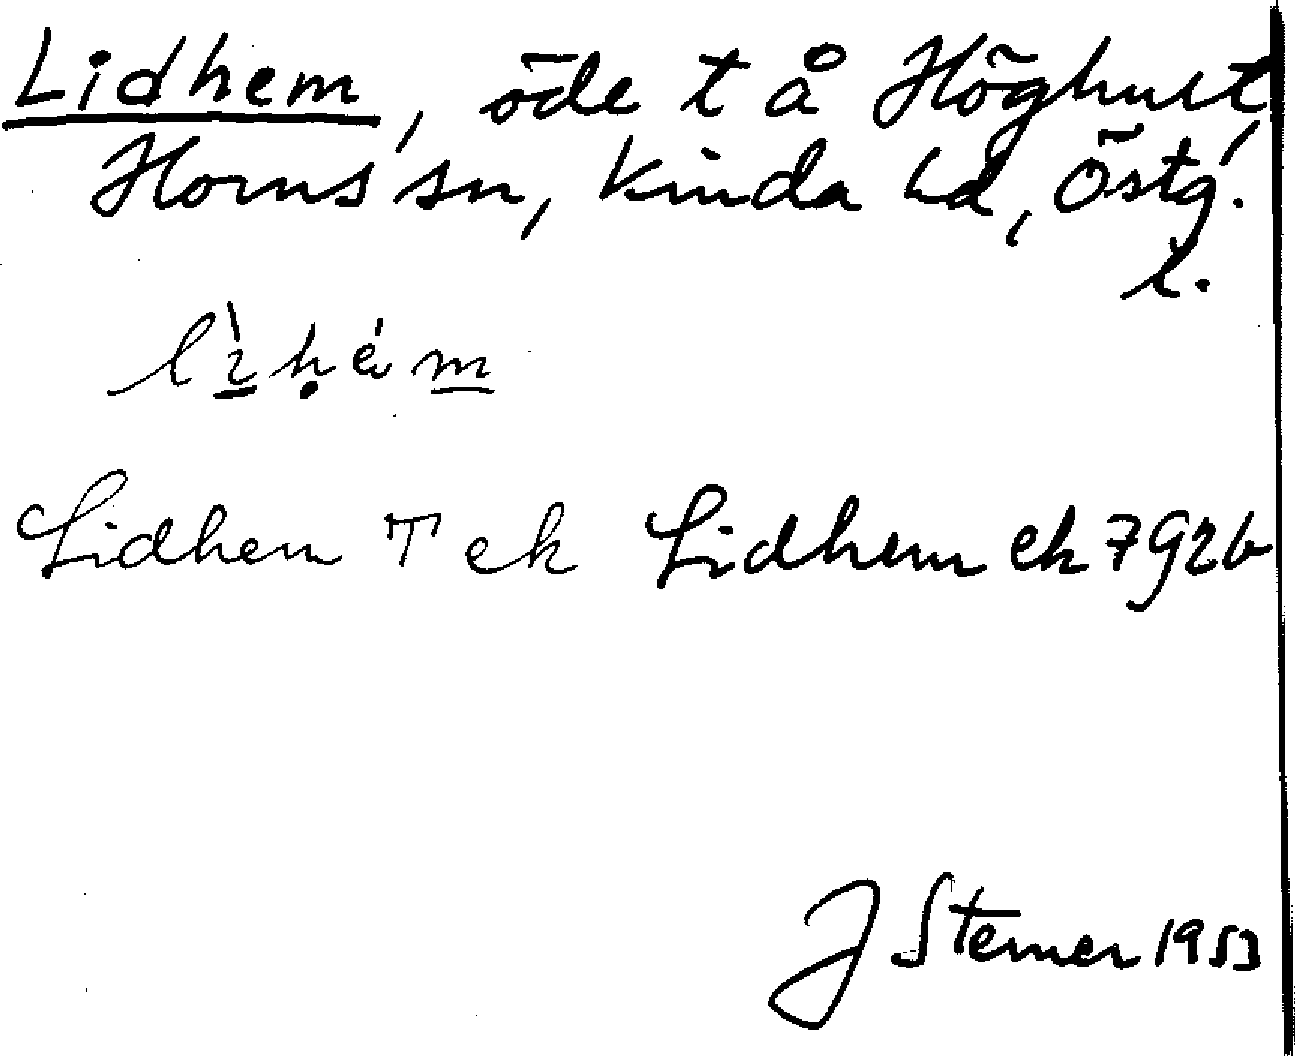 Lidhem, öde t å Höghult,
Horns sn, Kinda hd, Östg.
l.
lìhém
Lidhem T ek Lidhem ek 7926
J Sterner 1953